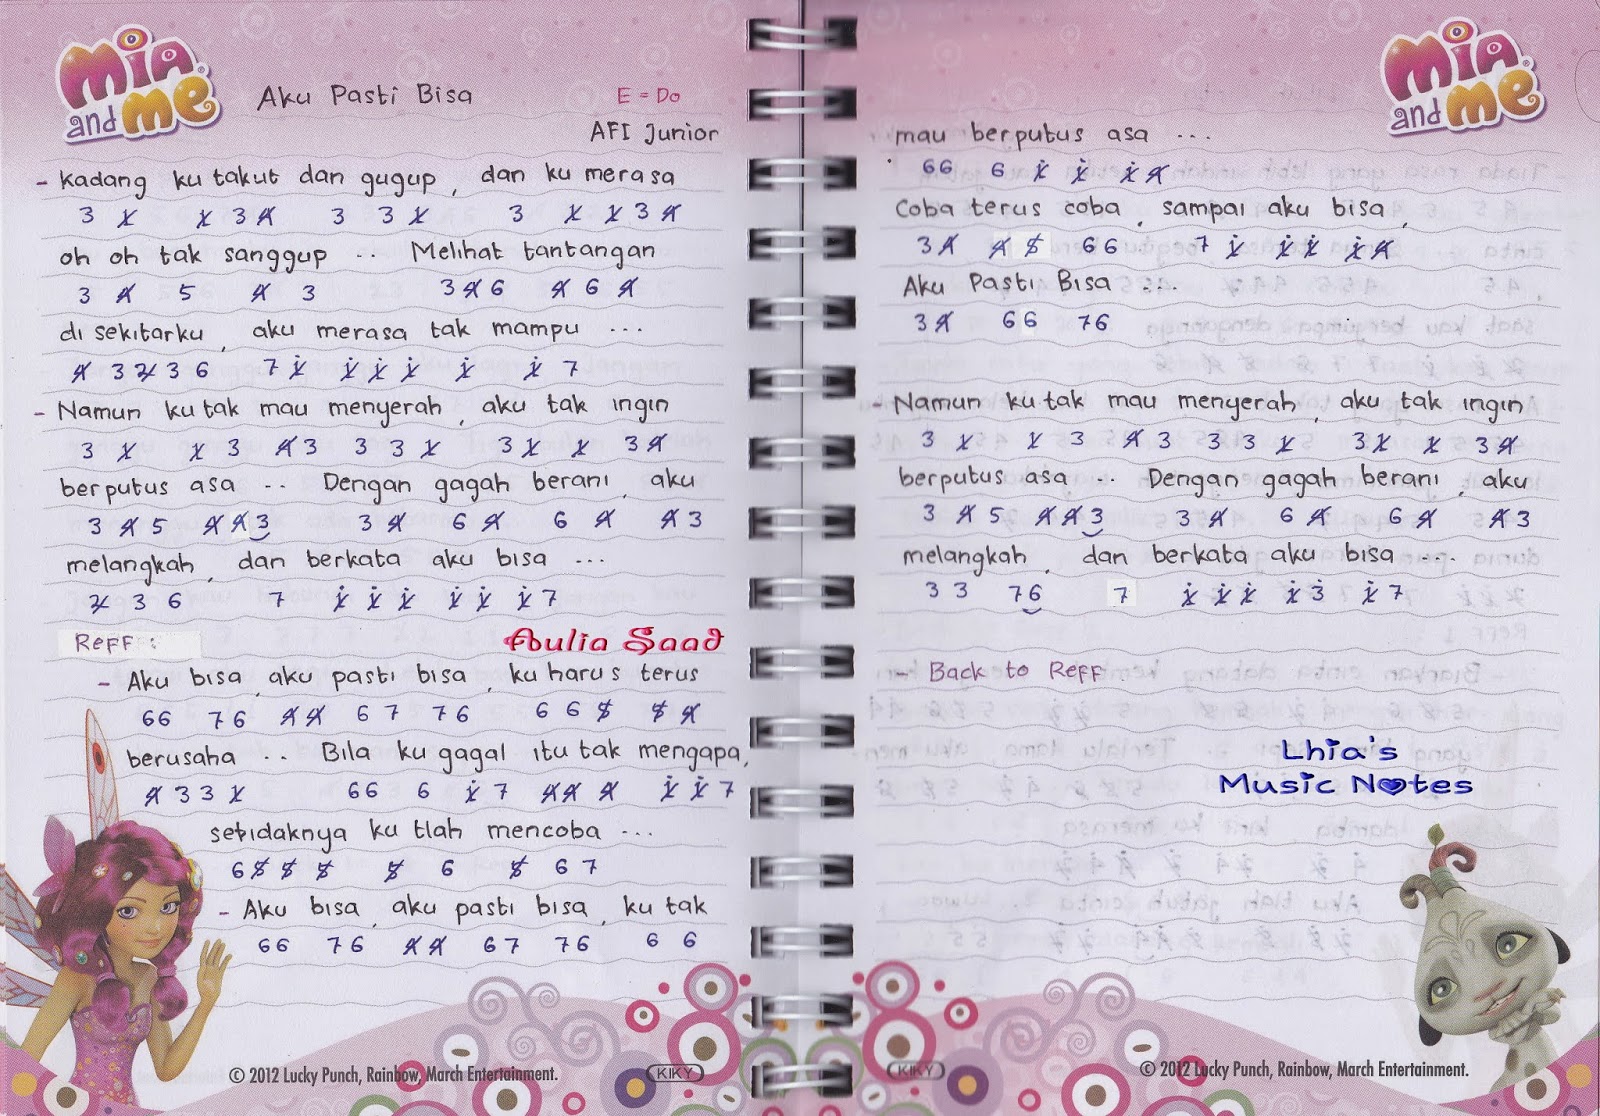 mia and me
Aku Pasti Bisa
E = Do
AFI Junior
- Kadang ku takut dan gugup, dan ku merasa
3 1̸ 1̸ 3 4̸ 3 3 1̸ 3 1̸ 1̸ 3 4̸
oh oh tak sanggup .. Melihat tantangan
3 4̸ 5 4̸ 3 3 4̸ 6 4̸ 6 4̸
di sekitarku, aku merasa tak mampu ...
4̸ 3 2̸ 3 6 7 1̸̇ 1̸̇ 1̸̇ 1̸̇ 1̸̇ 1̸̇ 7
- Namun ku tak mau menyerah, aku tak ingin
3 1̸ 1̸ 3 4̸ 3 3 3 1̸ 3 1̸ 1̸ 3 4̸
berputus asa .. Dengan gagah berani, aku
3 4̸ 5 4̸ 4̸ 3 3 4̸ 6 4̸ 6 4̸ 4̸ 3
melangkah, dan berkata aku bisa ...
2̸ 3 6 7 1̸̇ 1̸̇ 1̸̇ 1̸̇ 1̸̇ 1̸̇ 7
Reff :
Aulia Saad
- Aku bisa, aku pasti bisa, ku harus terus
66 76 4̸4̸ 67 76 6 6 5̸ 5̸ 4̸
berusaha .. Bila ku gagal itu tak mengapa,
4̸ 3 3 1̸ 66 6 1̸̇ 7 4̸4̸ 4̸ 1̸̇ 1̸̇ 7
setidaknya ku tlah mencoba ...
6 5̸ 5̸ 5̸ 5̸ 6 5̸ 6 7
- Aku bisa, aku pasti bisa, ku tak
66 76 4̸4̸ 67 76 6 6
© 2012 Lucky Punch, Rainbow, March Entertainment.
KIKY
mia and me
mau berputus asa ...
66 6 1̸̇ 1̸̇ 1̸̇ 4̸
Coba terus coba, sampai aku bisa,
3 4̸ 4̸ 5̸ 66 7 1̸̇ 1̸̇1̸̇ 1̸̇ 4̸
Aku Pasti Bisa ...
3 4̸ 66 76
- Namun ku tak mau menyerah, aku tak ingin
3 1̸ 1̸ 3 4̸ 3 3 3 1̸ 3 1̸ 1̸ 3 4̸
berputus asa .. Dengan gagah berani, aku
3 4̸ 5 4̸ 4̸ 3 3 4̸ 6 4̸ 6 4̸ 4̸ 3
melangkah, dan berkata aku bisa ...
3 3 76 7 1̸̇ 1̸̇ 1̸̇ 1̸̇ 3̇ 1̸̇ 7
- Back to Reff
Lhia's
Music Notes
© 2012 Lucky Punch, Rainbow, March Entertainment.
KIKY